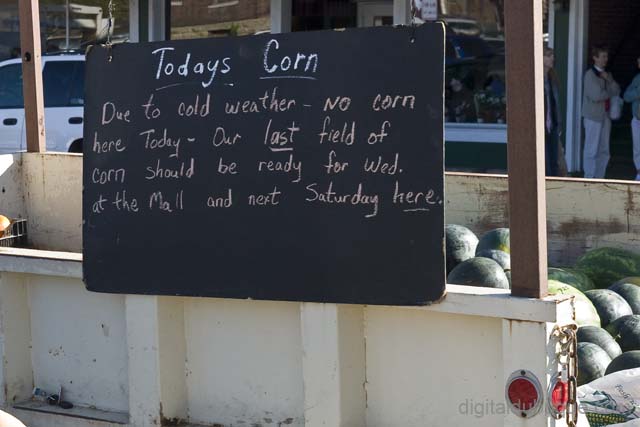 Todays Corn
Due to cold weather - NO corn
here Today - Our last field of
corn should be ready for Wed.
at the Mall and next Saturday here.